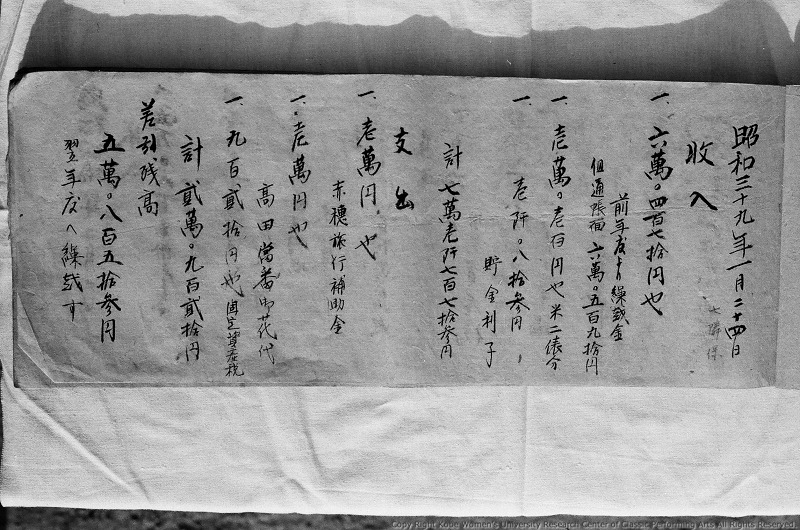 昭和三十九年一月二十四日
収入
一、六萬。四百七拾円也
前年度より繰越金
但通張面 六萬。五百九拾円
一、壱萬。壱百円也 米二俵分
一、壱阡。八拾参円
貯金利子
計 七萬壱阡七百七拾参円
支出
一、壱萬円也
赤穂旅行補助金
一、壱萬円也
高田当番御花代
一、九百弐拾円也 固定資産税
計 弐萬。九百弐拾円
差引残高
五萬。八百五拾参円
翌年度へ繰越す
Copy Right Kobe Women's University Research Center of Classic Performing Arts All Rights Reserved